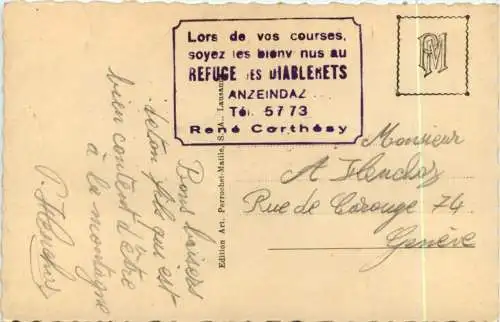 Lors de vos courses,
soyez les bienv nus au
REFUGE DES DIABLERETS
ANZEINDAZ
Tél. 5773
René Carthésy
PM
Bons baisers
de ton fils qui est
bien content d'être
à la montagne
P. Henchoz
Edition Art. Perrochet-Matile, S. A., Lausanne
Monsieur
A Henchoz
Rue de Carouge 74
Genève